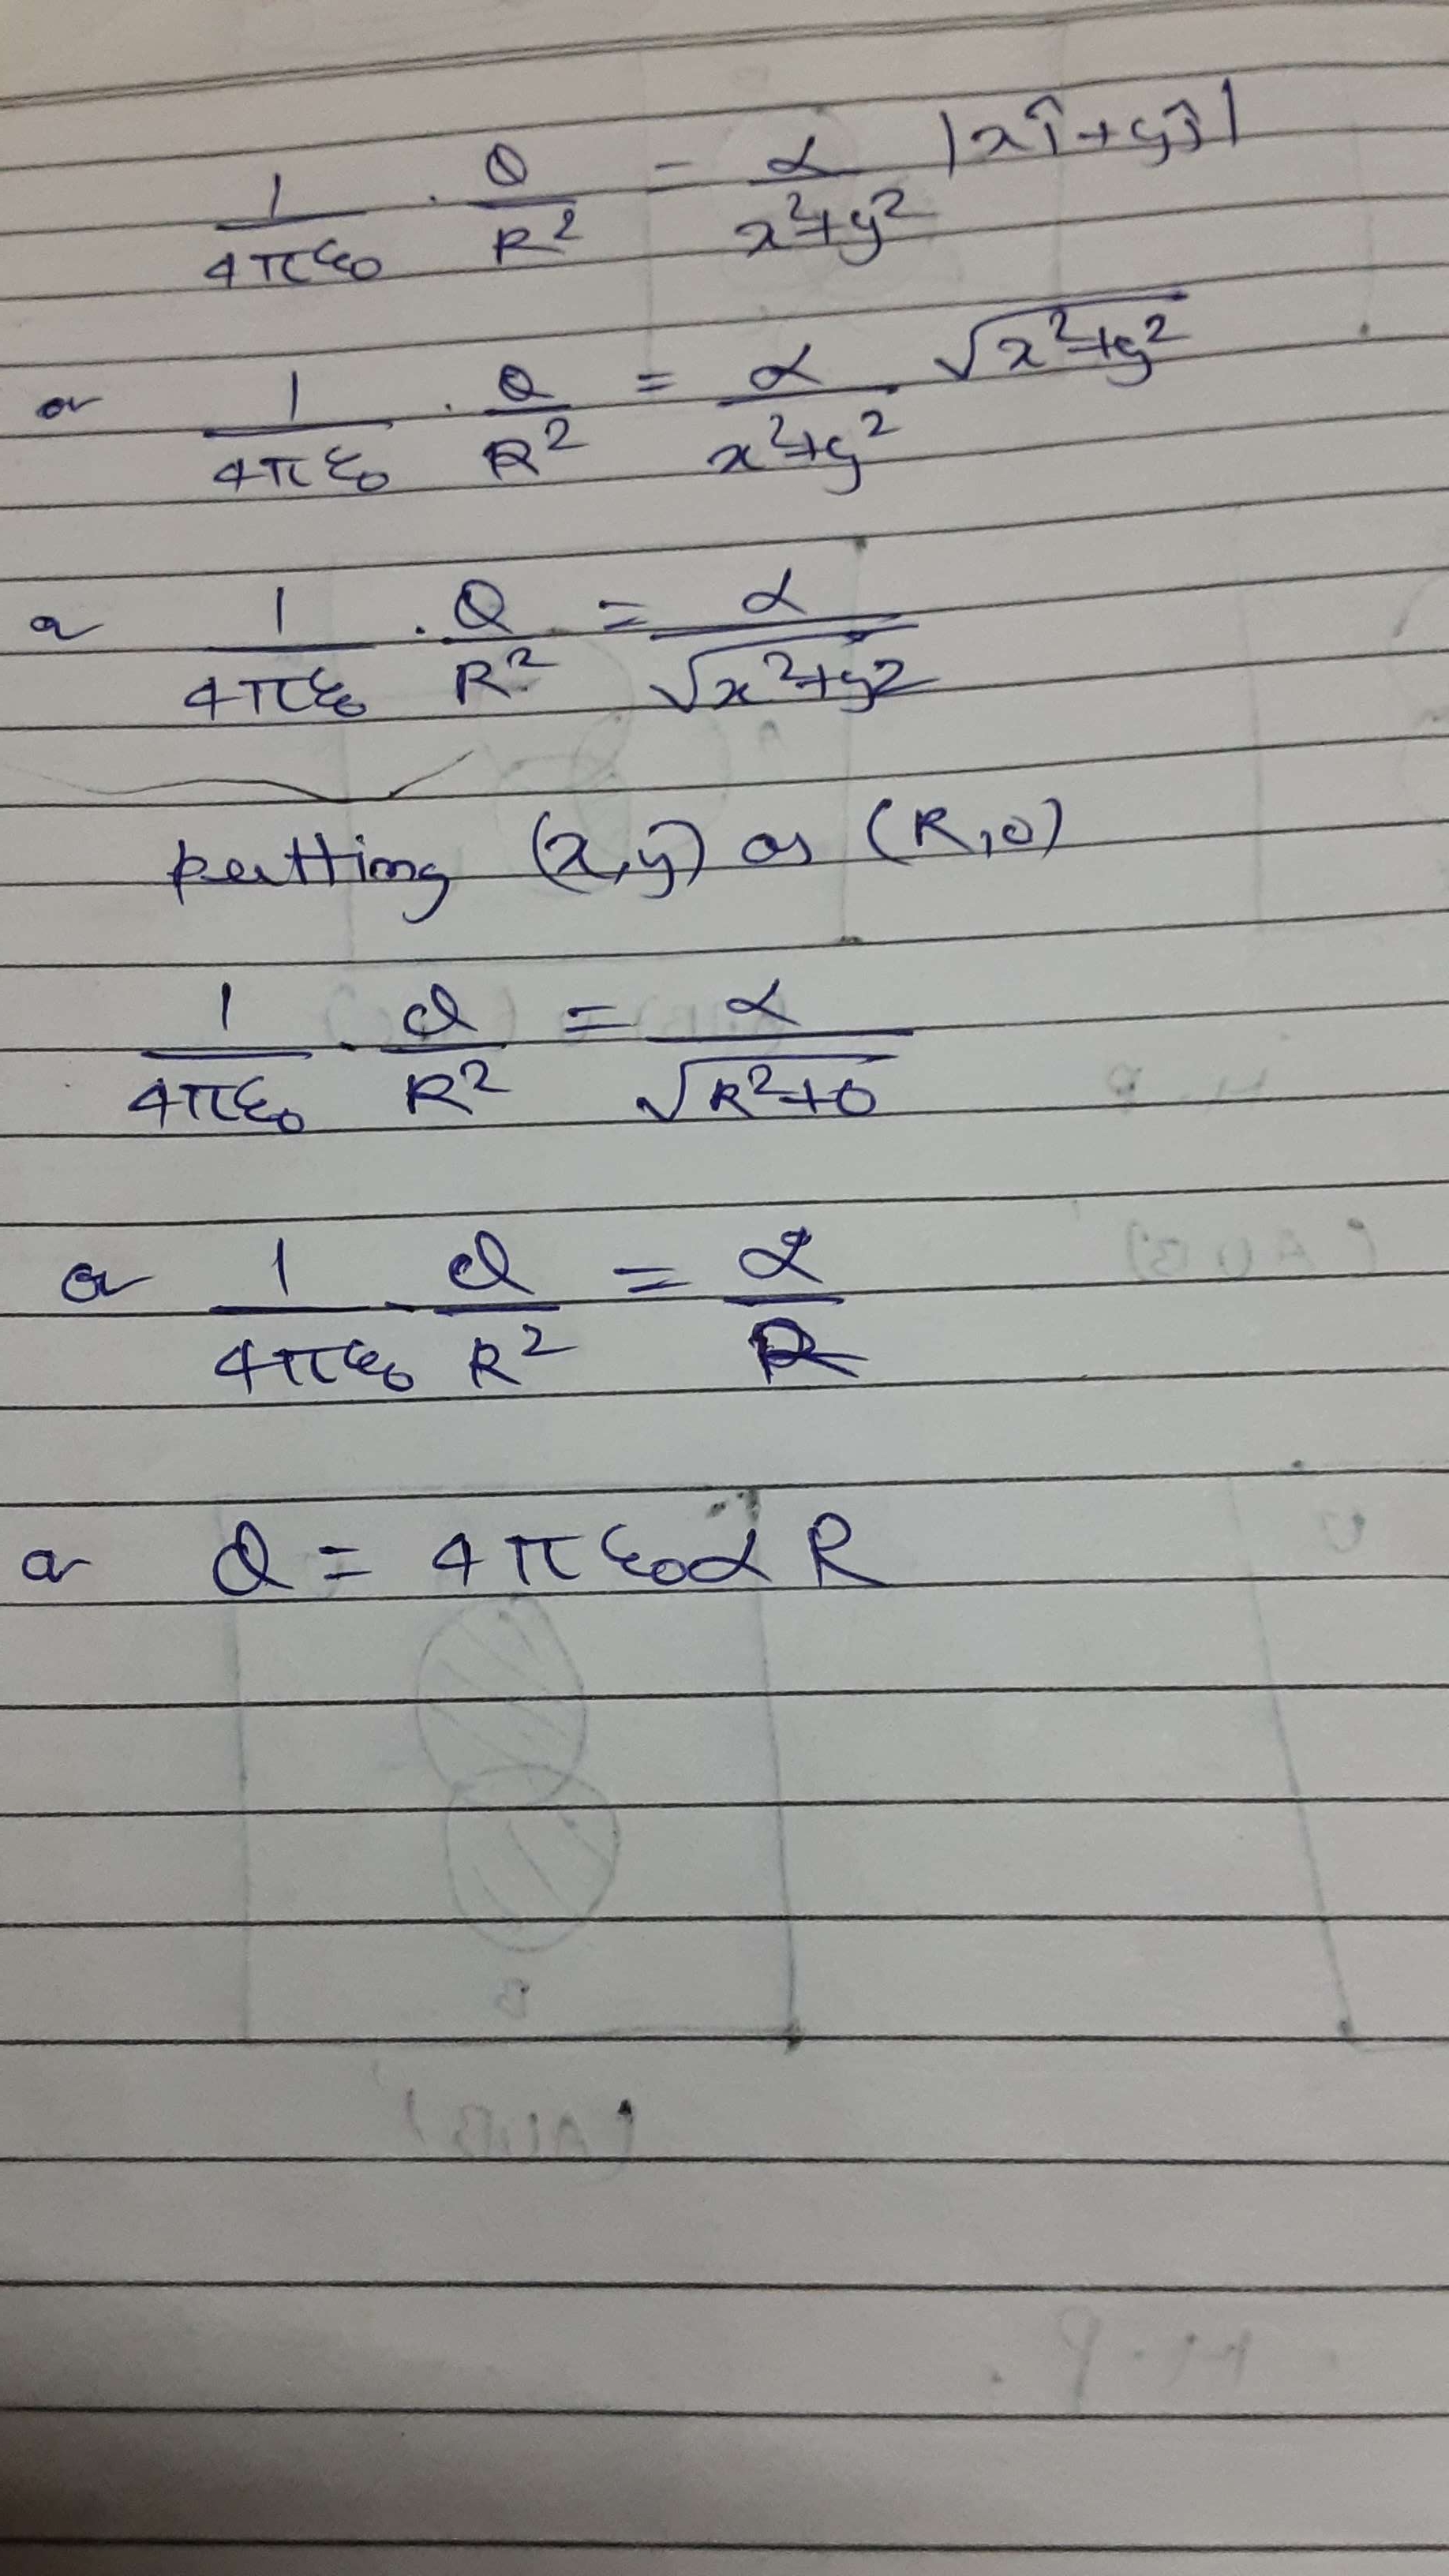 1/4πε₀ · Q/R² = α/x²+y² |xî+yĵ|
or 1/4πε₀ · Q/R² = α/x²+y² √x²+y²
or 1/4πε₀ · Q/R² = α/√x²+y²
putting (x,y) as (R,0)
1/4πε₀ · Q/R² = α/√R²+0
or 1/4πε₀ · Q/R² = α/R
or Q = 4πε₀αR